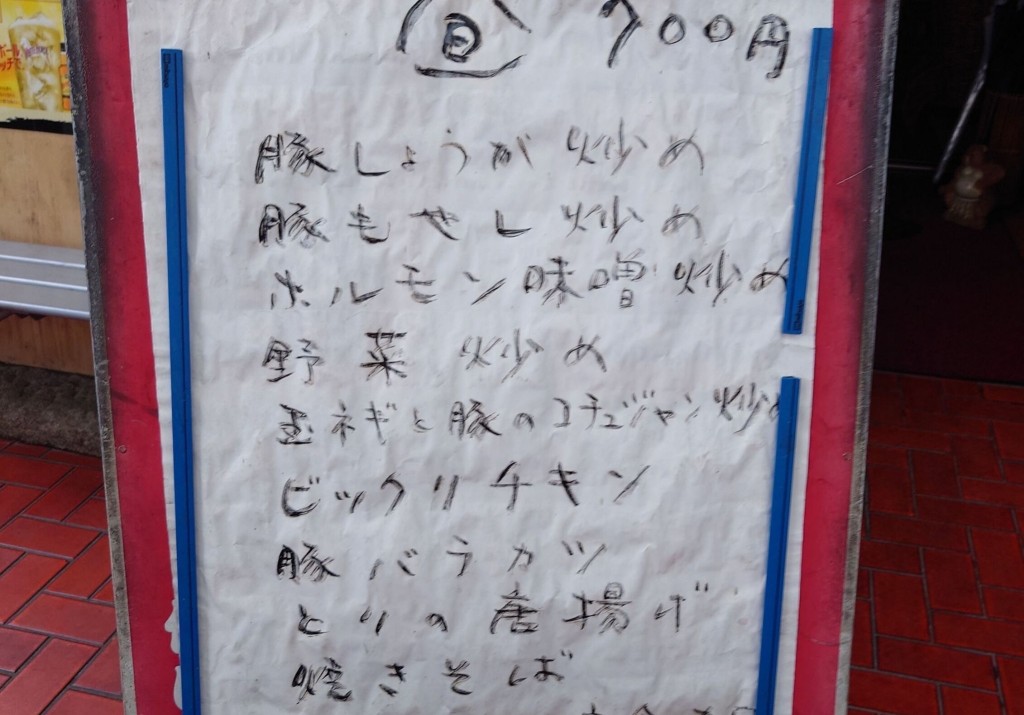 日 700円
豚しょうが炒め
豚もやし炒め
ホルモン味噌炒め
野菜炒め
玉ネギと豚のコチュジャン炒め
ビックリチキン
豚バラカツ
とりの唐揚げ
焼きそば